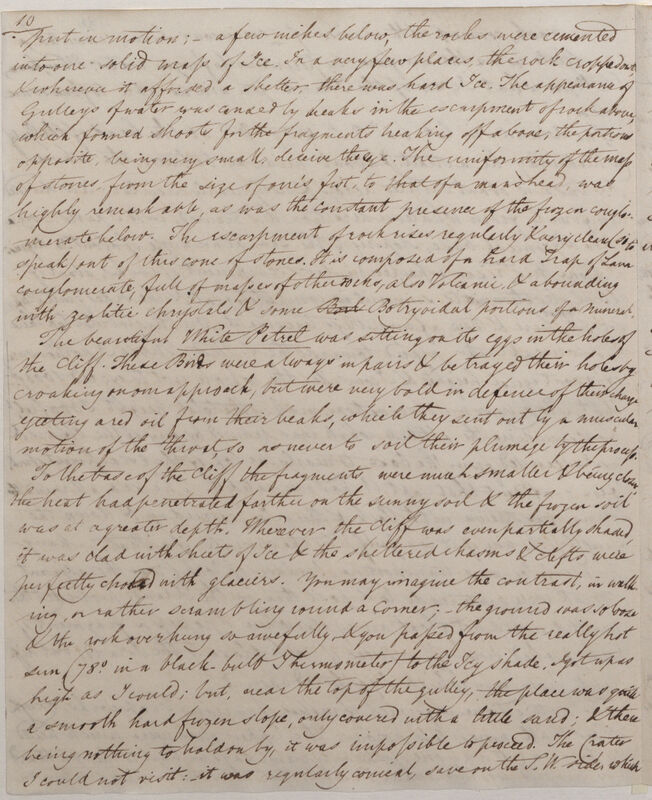 10
put in motion; – a few inches below, the rocks were cemented
into one solid mass of Ice. In a very few places, the rock cropped out
& wherever it afforded a shelter, there was hard Ice. The appearance of
Gulleys of water was caused by breaks in the escarpment of rock above,
which formed shoots for the fragments breaking off above; the portions
opposite, being very small, deceive the eye. The uniformity of the mass
of stones, from the size of one's fist, to that of a mans head, was
highly remarkable, as was the constant presence of the frozen conglo-
merate below. The escarpment of rock rises regularly & very clean (so to
speak) out of this cone of stones. It is composed of a hard Trap of Lava
conglomerate, full of masses of other rocks, also Volcanic, & abounding
with zeolitic chrystals & some Botryoidal portions of a mineral.
The beautiful White Petrel was sitting on its eggs in the holes of
the Cliff. These Birds were always in pairs & betrayed their holes by
croaking on our approach, but were very bold in defence of their charge
ejecting a red oil from their beaks, which they sent out by a muscular
motion of the throat, so as never to soil their plumage by the process.
To the base of the Cliff the fragments were much smaller & being clean,
the heat had penetrated farther on the sunny soil & the frozen soil
was at a greater depth. Wherever the Cliff was even partially shaded,
it was clad with sheets of Ice & the sheltered chasms & clefts were
perfectly choked with glaciers. You may imagine the contrast, in walk-
ing, or rather scrambling round a corner; – the ground was so loose
& the rock overhung so awefully, & you passed from the really hot
sun (78° in a black-bulb Thermometer) to the Icy shade. I got up as
high as I could; but, near the top of the gulley, the place was quite
a smooth hard frozen slope, only covered with a little sand; & there
being nothing to hold on by, it was impossible to proceed. The Crater
I could not visit: – it was regularly conical, save on the S.W. side, which